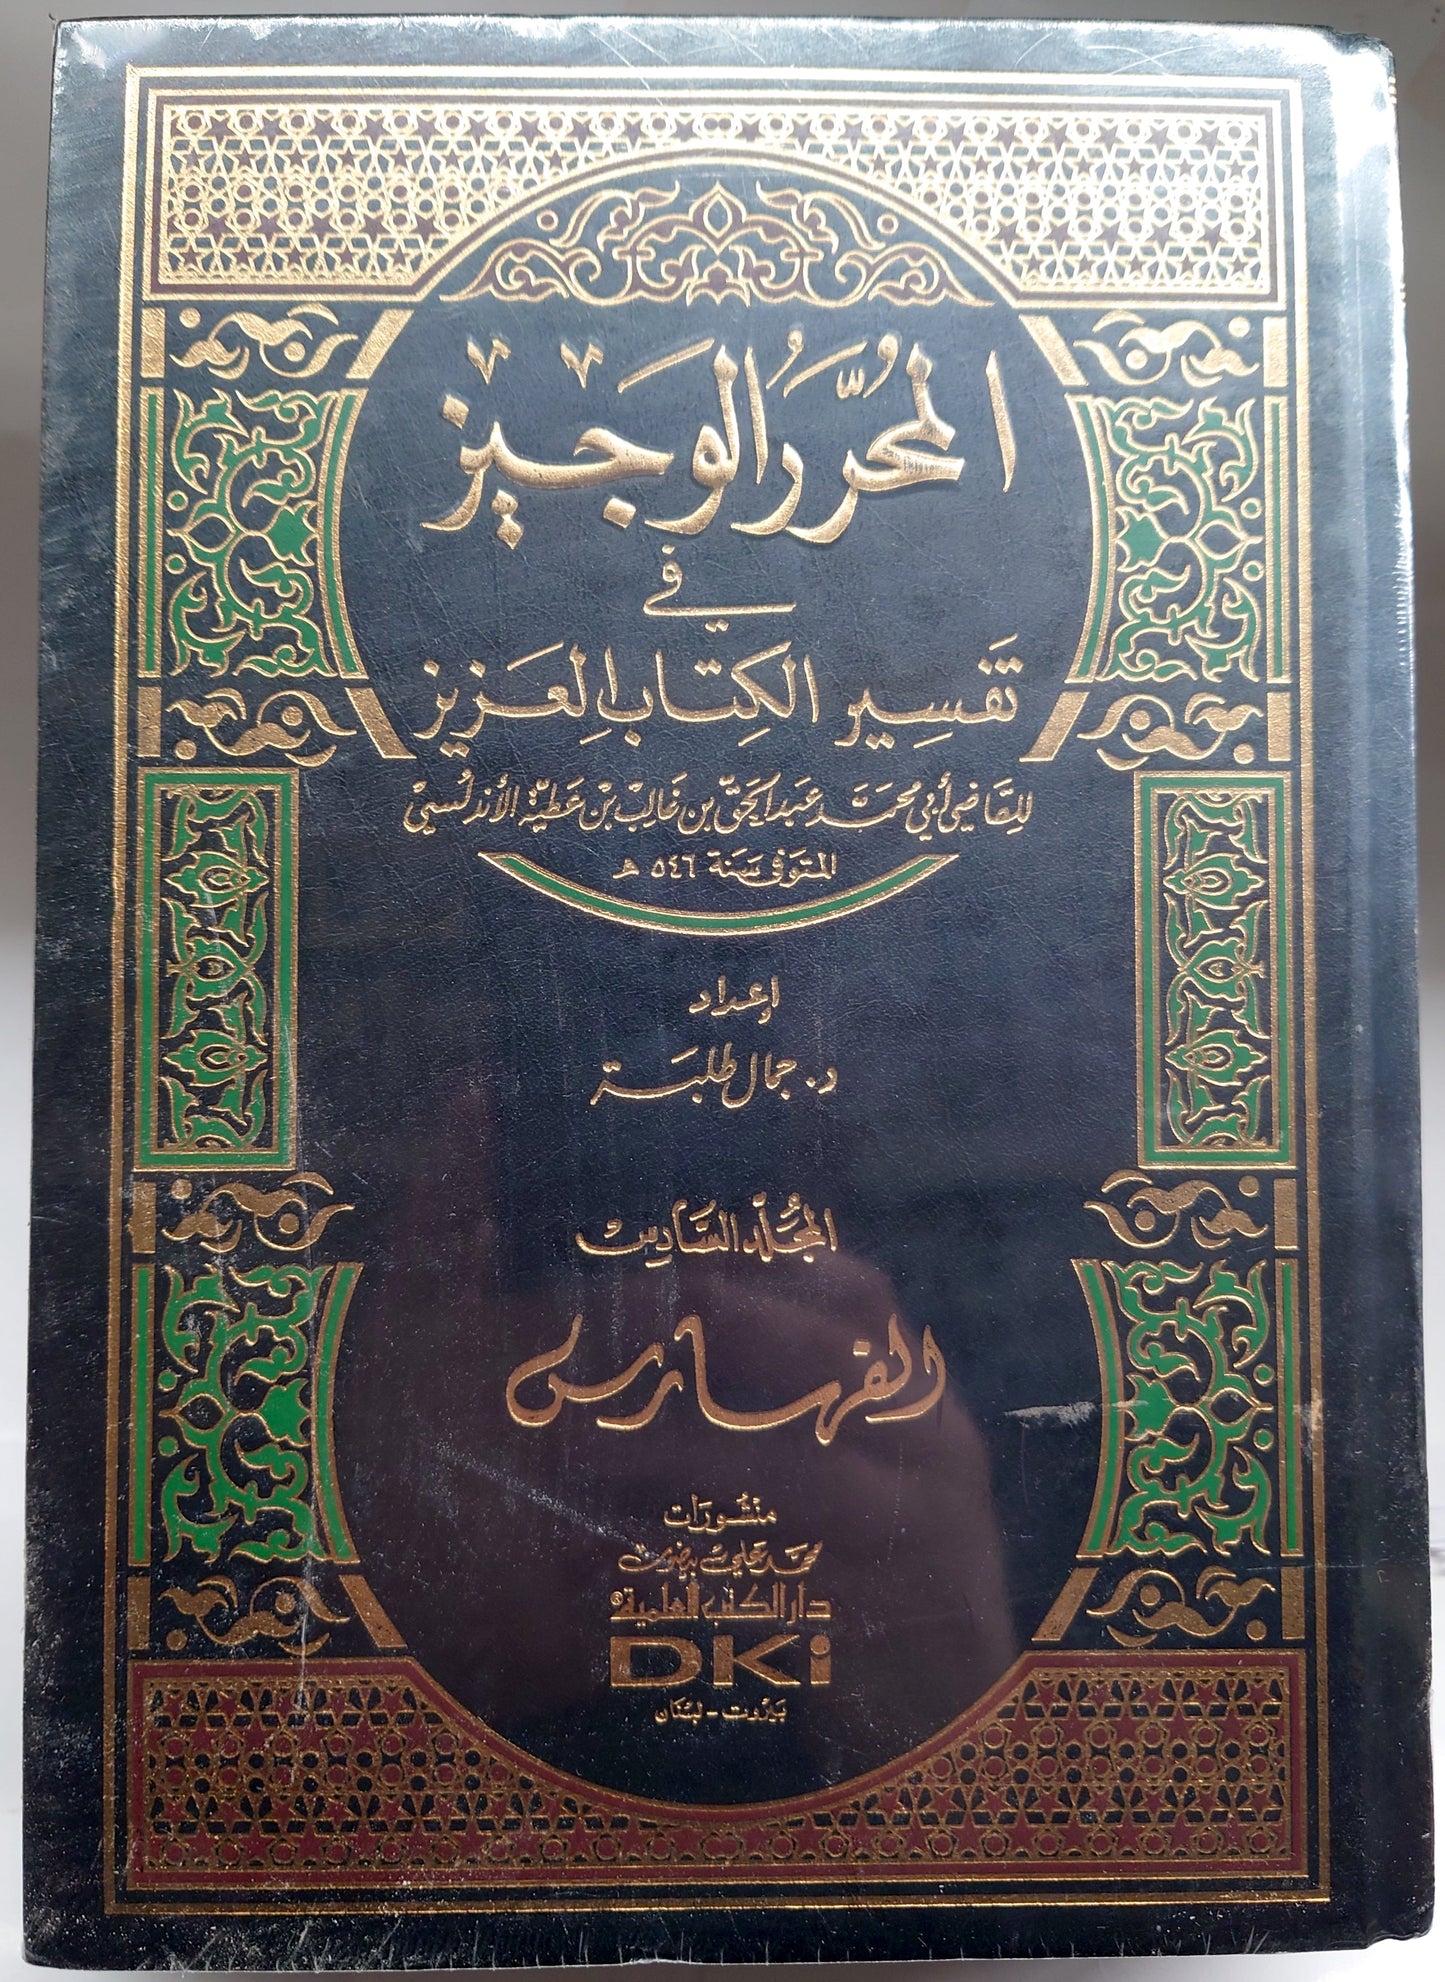 المُحَرَّرُ الوَجِيز
في
تَفسِير الكِتَاب العَزِيز
للقاضي أبي محمَّد عَبد الحَقّ بن غَالِب بن عَطيَّة الأندلسيّ
المتوَفى سَنة ٥٤٦ هـ
إعداد
د. جمال طلبَة
المُجَلّد السَّادِس
الفهارس
مَنشورَات
محمَّد عَلي بيضون
دار الكتب العلمية
DKi
بَيْروت - لبْنَان